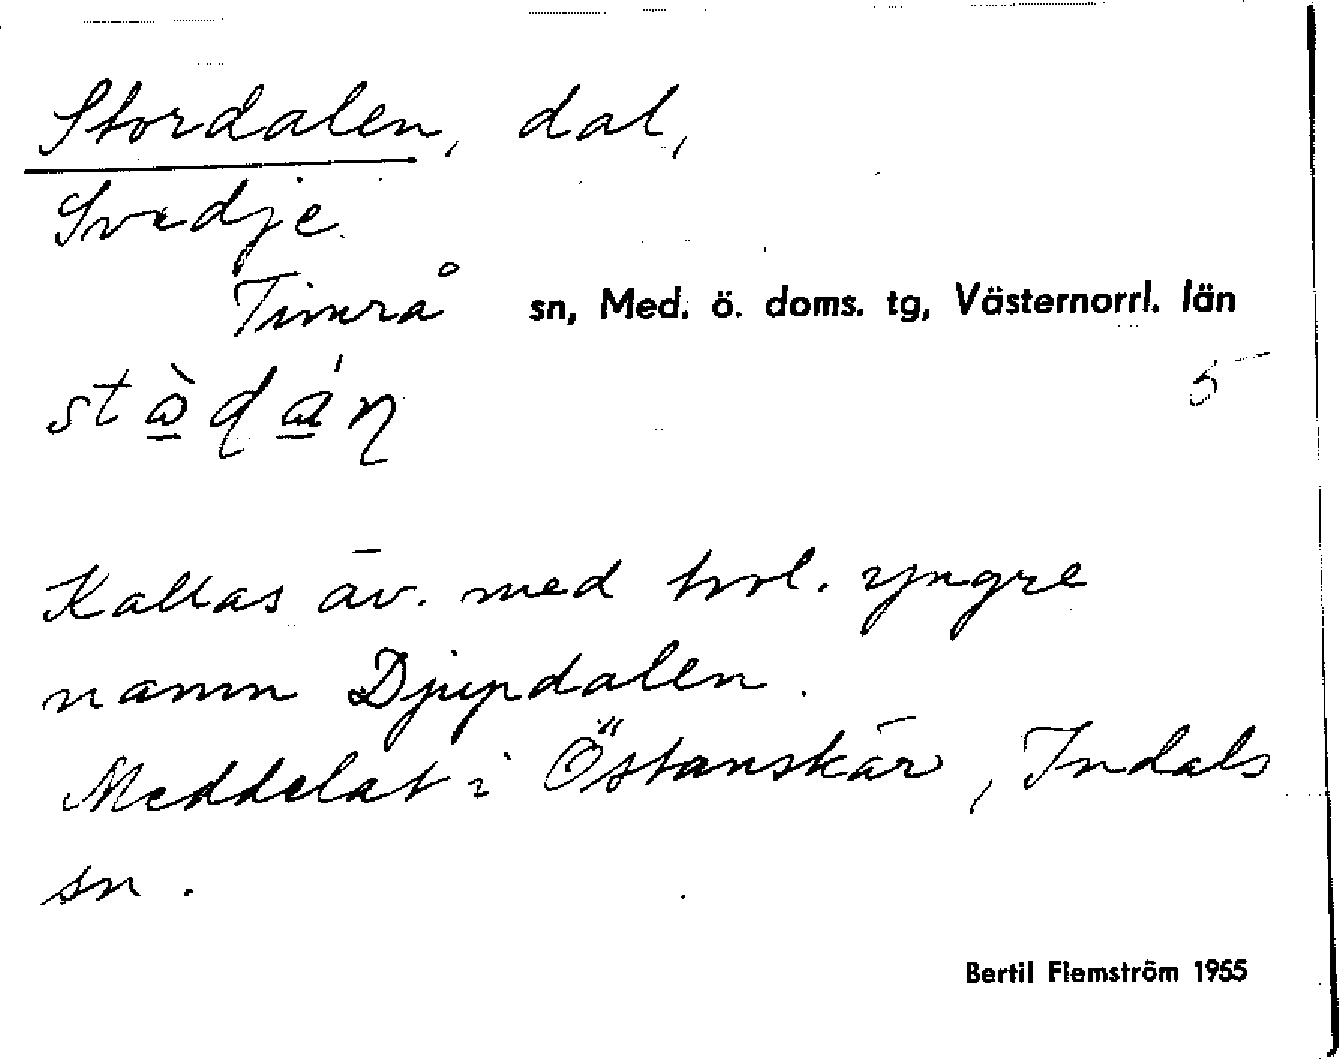 Stordalen, dal,
Svedje
Timrå sn, Med. ö. doms. tg, Västernorrl. län
5
Kallas äv. med trol. yngre
namn Djupdalen.
Meddelat i Östanskär, Indals
sn.
Bertil Flemström 1955